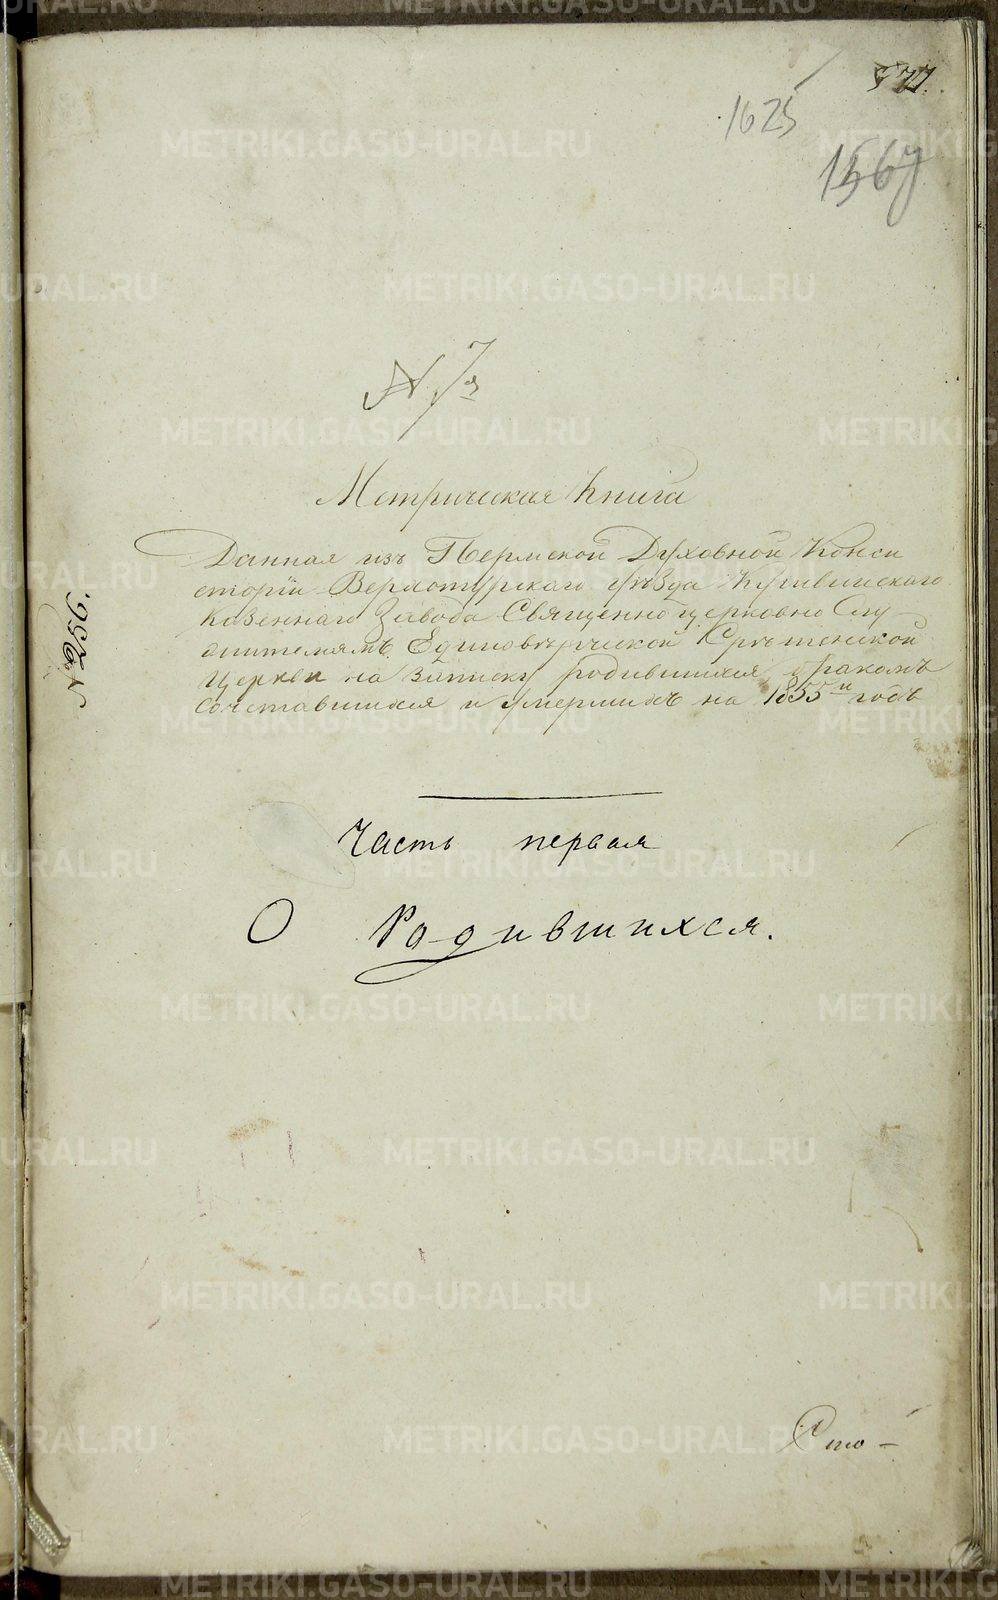 577.
1625
1567
№ 7/3
Метрическая Книга
Данная изъ Пермской Духовной Конси
сторіи Верхотурскаго уѣзда Кушвинскаго
Казеннаго Завода Священно церковно Слу-
жителямъ Единовѣрческой Срѣтенской
Церкви на записку родившихся, бракомъ
сочетавшихся и умершихъ на 1855й годъ
№ 256.
Часть первая
О Родившихся.
Сто-
METRIKI.GASO-URAL.RU